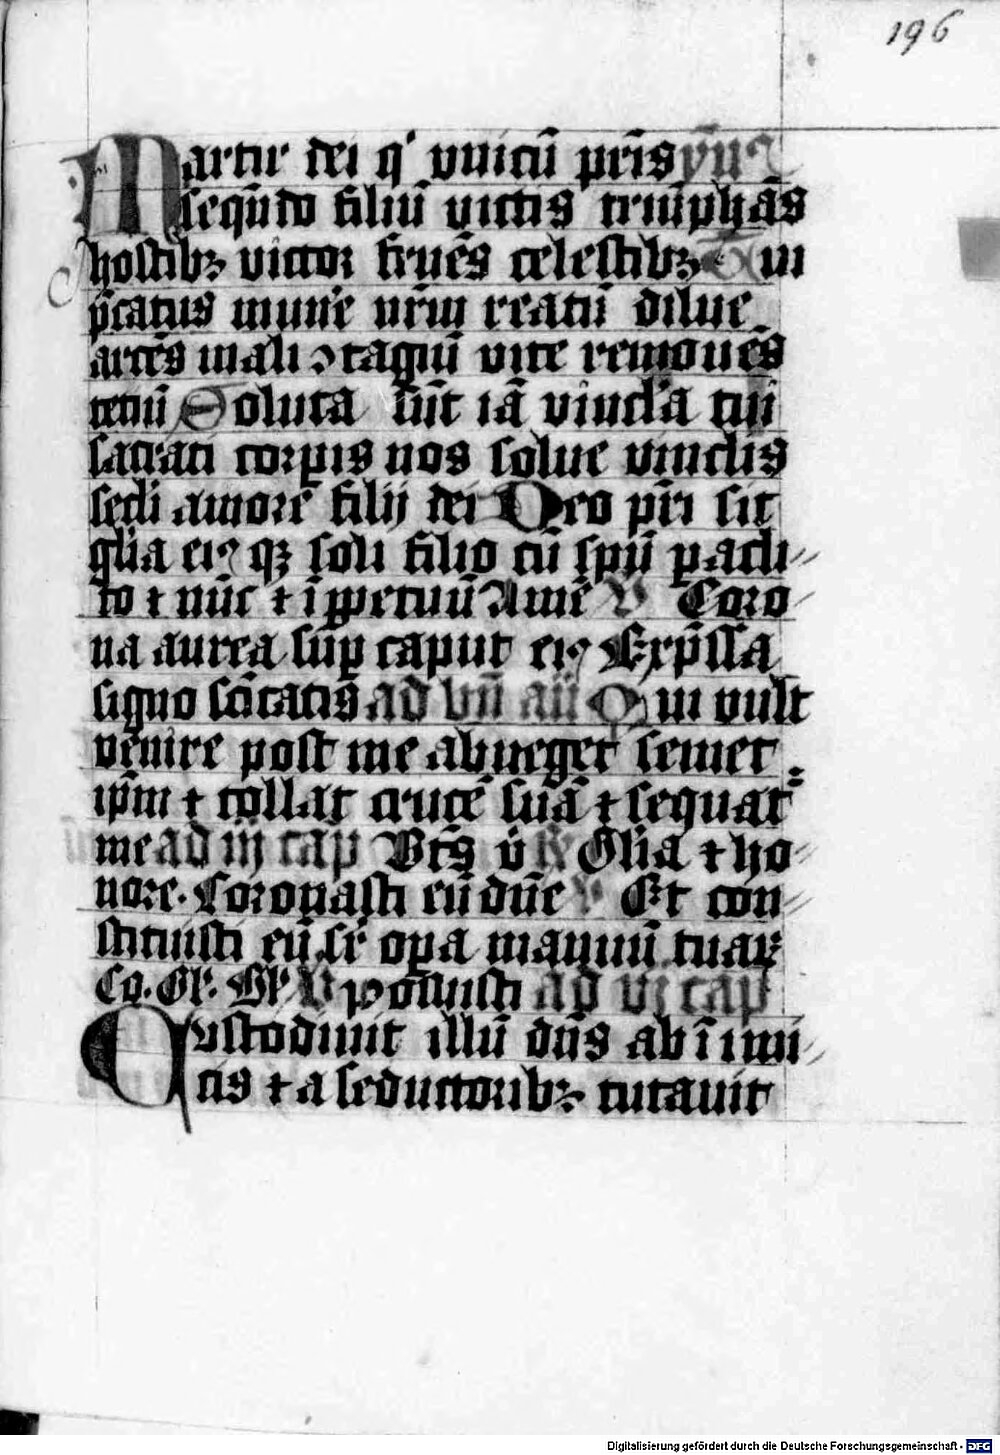 196
Martir dei qͥ vnicū pr̄is ym̄9
sequēdo filiū victis triūphās
hostibꝫ victor fruēs celestibꝫ Tui
p̄catus mun̄e nr̄m reatū dilue
arcēs mali ꝯtagiū vite remouēs
tediū Soluta sūt iā vincl̄a tui
sacrati corpis nos solue vinclis
secli amore filij dei Deo pr̄i sit
gl̄ia ei9 qꝫ soli filio cū sp̄u pacli-
to ⁊ nūc ⁊ ī ꝑpetuū Amē V Coro-
na aurea suꝑ caput ei9 Exp̄ssa
signo sc̄itatis ad vn̄ an̄ Qui vult
venire post me abneget semet
ip̄m ⁊ tollat crucē suā ⁊ sequat᷑
me ad iij cap Br̄s v̄ R̄ Gl̄ia ⁊ ho-
nore. Coronasti eū dn̄e V Et con-
stituisti eū sr̄ opa manuū tuaꝝ
Co. Gl'. Gl' V posuisti ad vj cap
Custodiuit illū dn̄s ab īimi-
cis ⁊ a seductoribꝫ tutauit
Digitalisierung gefördert durch die Deutsche Forschungsgemeinschaft - DFG